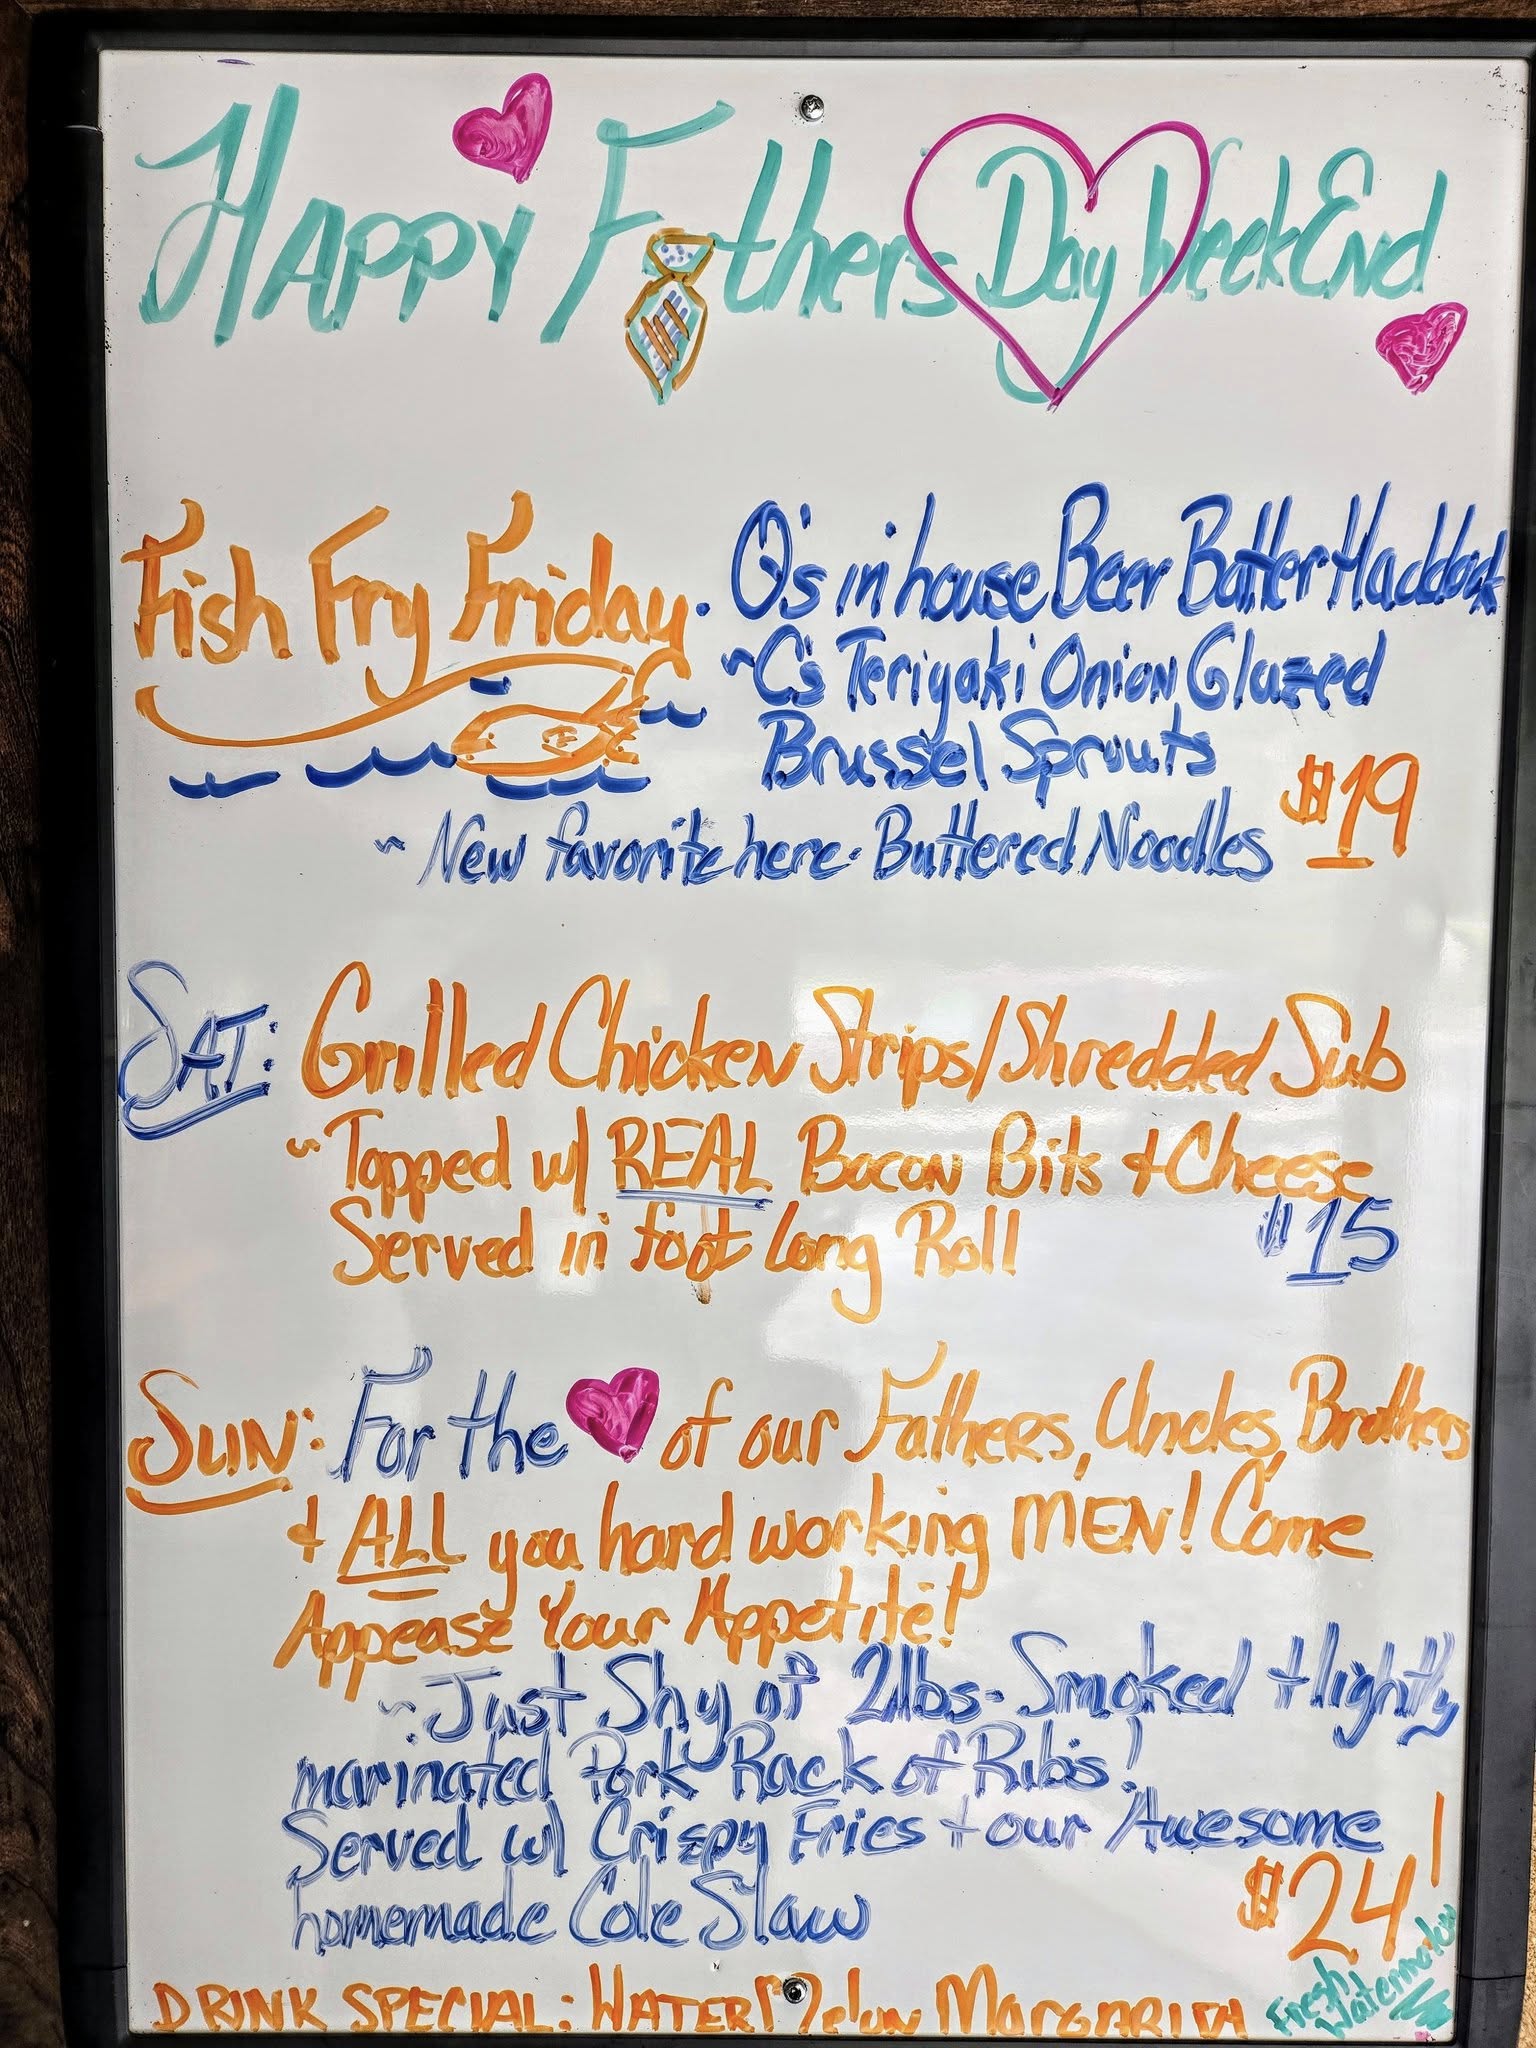 Happy Father's Day WeekEnd
Fish Fry Friday. Q's in house Beer Batter Haddock
~C's Teriyaki Onion Glazed
Brussel Sprouts
$19
~ New favorite here. Buttered Noodles
SAT: Grilled Chicken Strips/Shredded Sub
~Topped w/ REAL Bacon Bits + Cheese
Served in foot long Roll
$15
SUN: For the ♥ of our Fathers, Uncles, Brothers
+ ALL you hard working MEN! Come
Appease Your Appetite!
~Just Shy of 2lbs. Smoked + lightly
marinated Pork Rack of Ribs!
Served w/ Crispy Fries + our Awesome
homemade Cole Slaw
$24!
DRINK SPECIAL: WATER Melon Margarita
Fresh
Watermelon